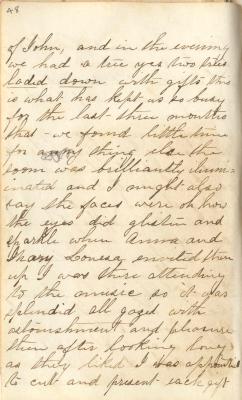 48
of John, and in the evening
we had a tree yes two trees
laded down with gifts this
is what has kept us so busy
for the last three months
that we found little time
for any thing else the
room was brilliantly illum-
inated and I might also
say the faces were oh how
the eyes did glisten and
sparkle when Anna and
Mary Louesa invited them
up I was there attending
to the music so it was
splendid all gazed with
astonishment and pleasure
then after looking long
as they liked I was appointed
to cut and present each gift